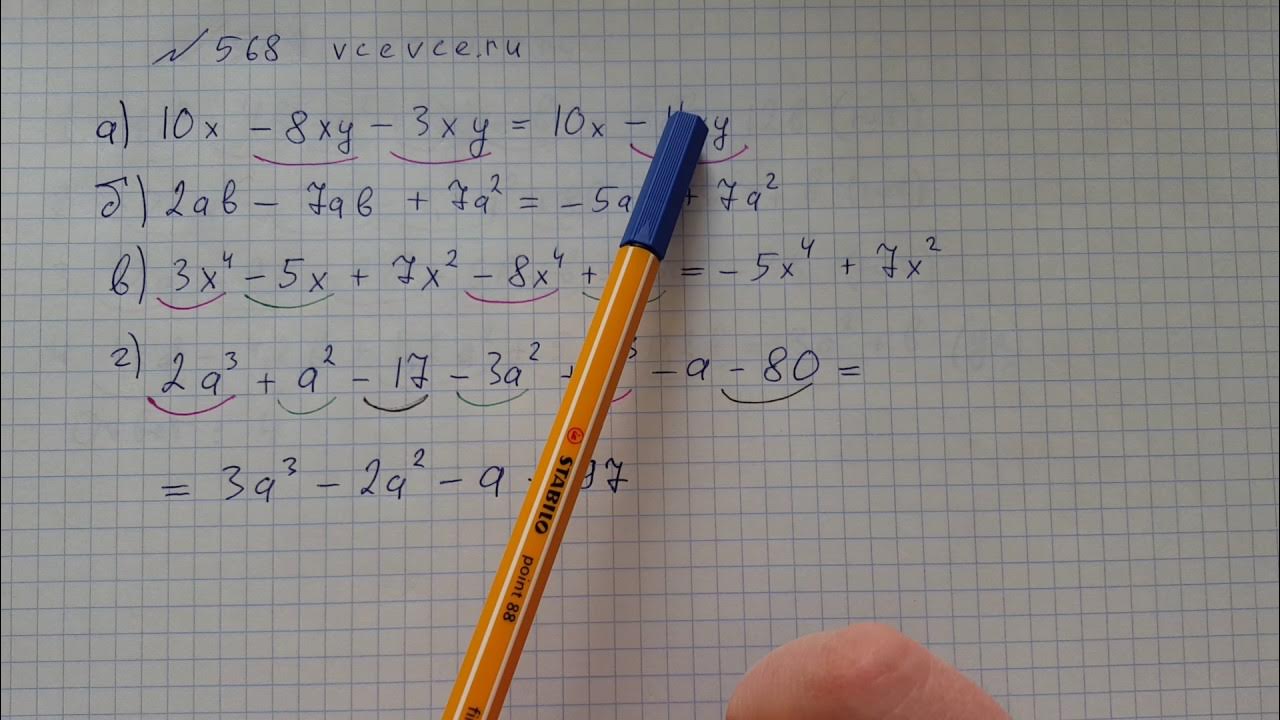 № 568 vcevce.ru
а) 10x - 8xy - 3xy = 10x - 11xy
б) 2ab - 7ab + 7a² = -5a + 7a²
в) 3x⁴ - 5x + 7x² - 8x⁴ + = -5x⁴ + 7x²
г) 2a³ + a² - 17 - 3a² + ³ - a - 80 =
= 3a³ - 2a² - a 97
STABILO point 88